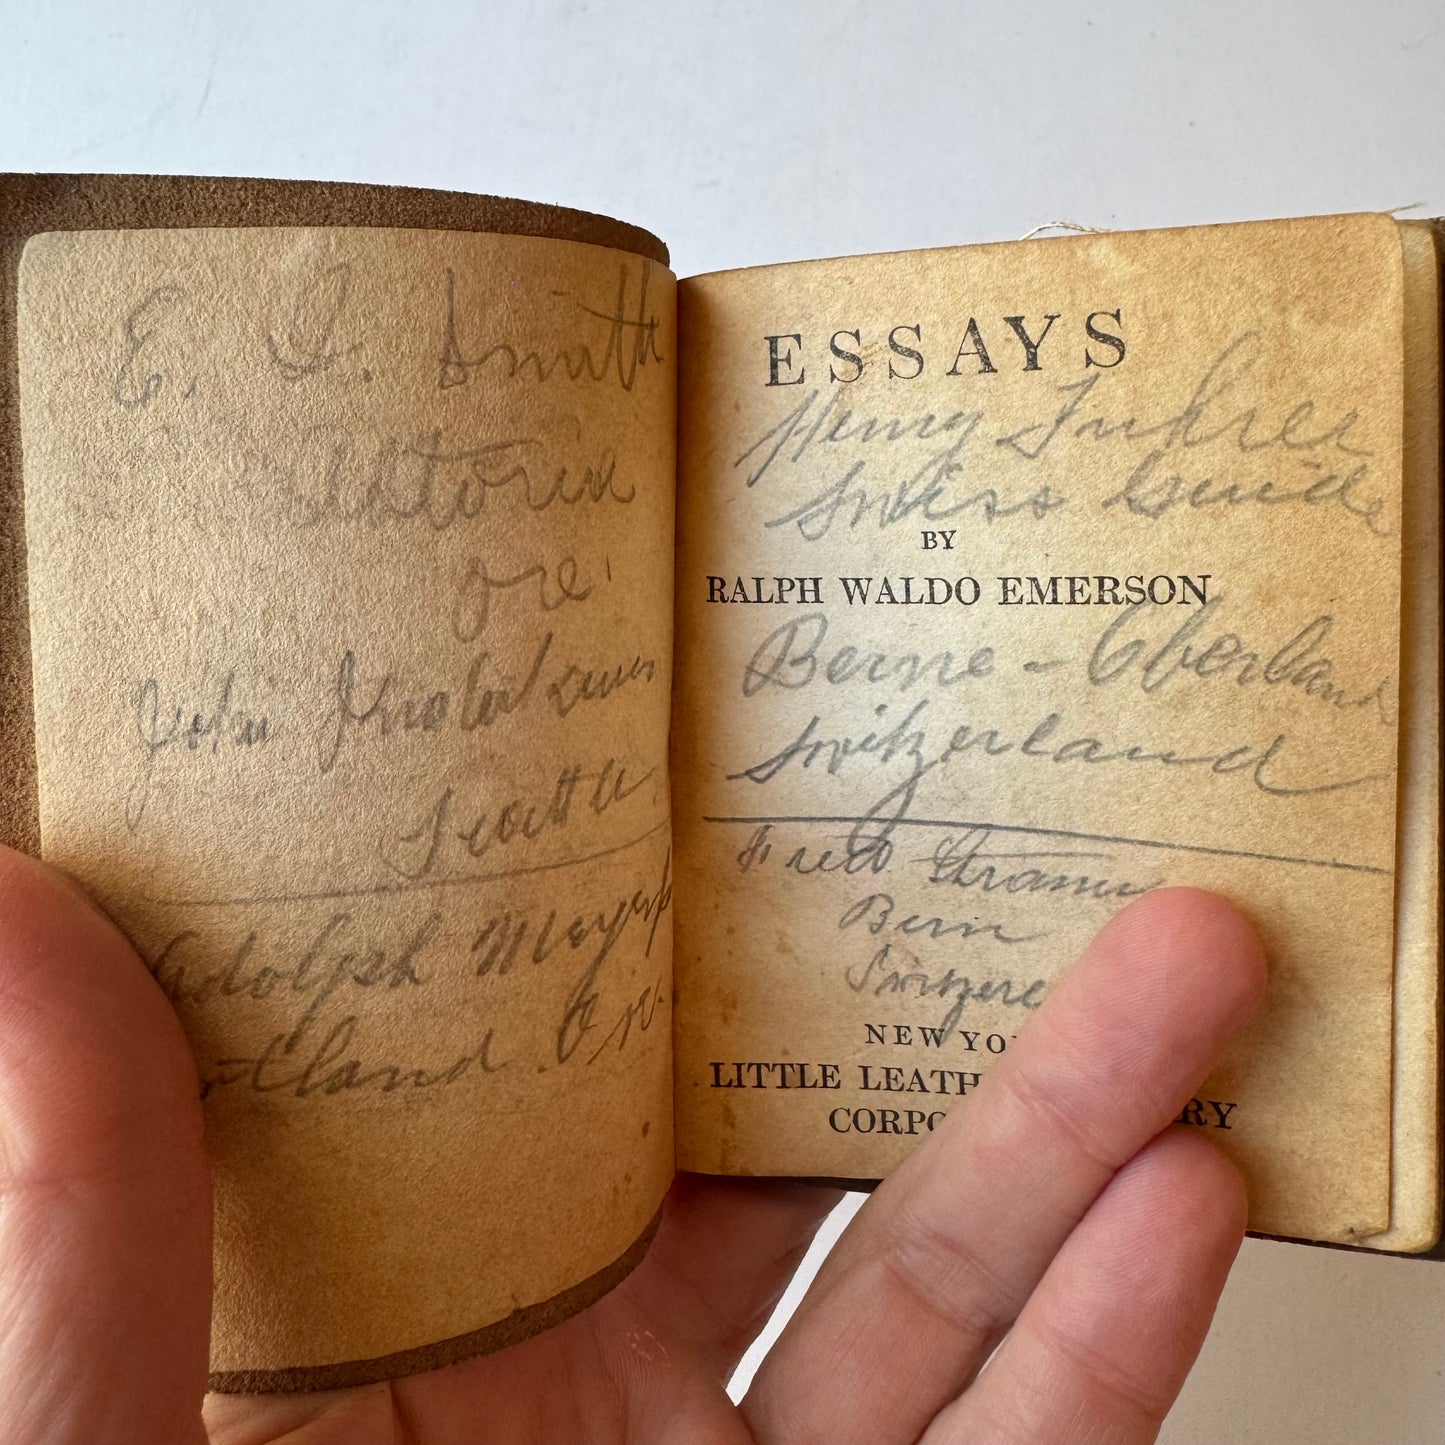 E. G. Smith
Astoria
ore.
John
Seattle
Adolph Meyer
Portland Ore.
ESSAYS
Henry Fuhrer
Swiss Guide
BY
RALPH WALDO EMERSON
Berne - Oberland
Switzerland
Fred
Bern
Switzere
NEW YO
LITTLE LEATH RY
CORPO